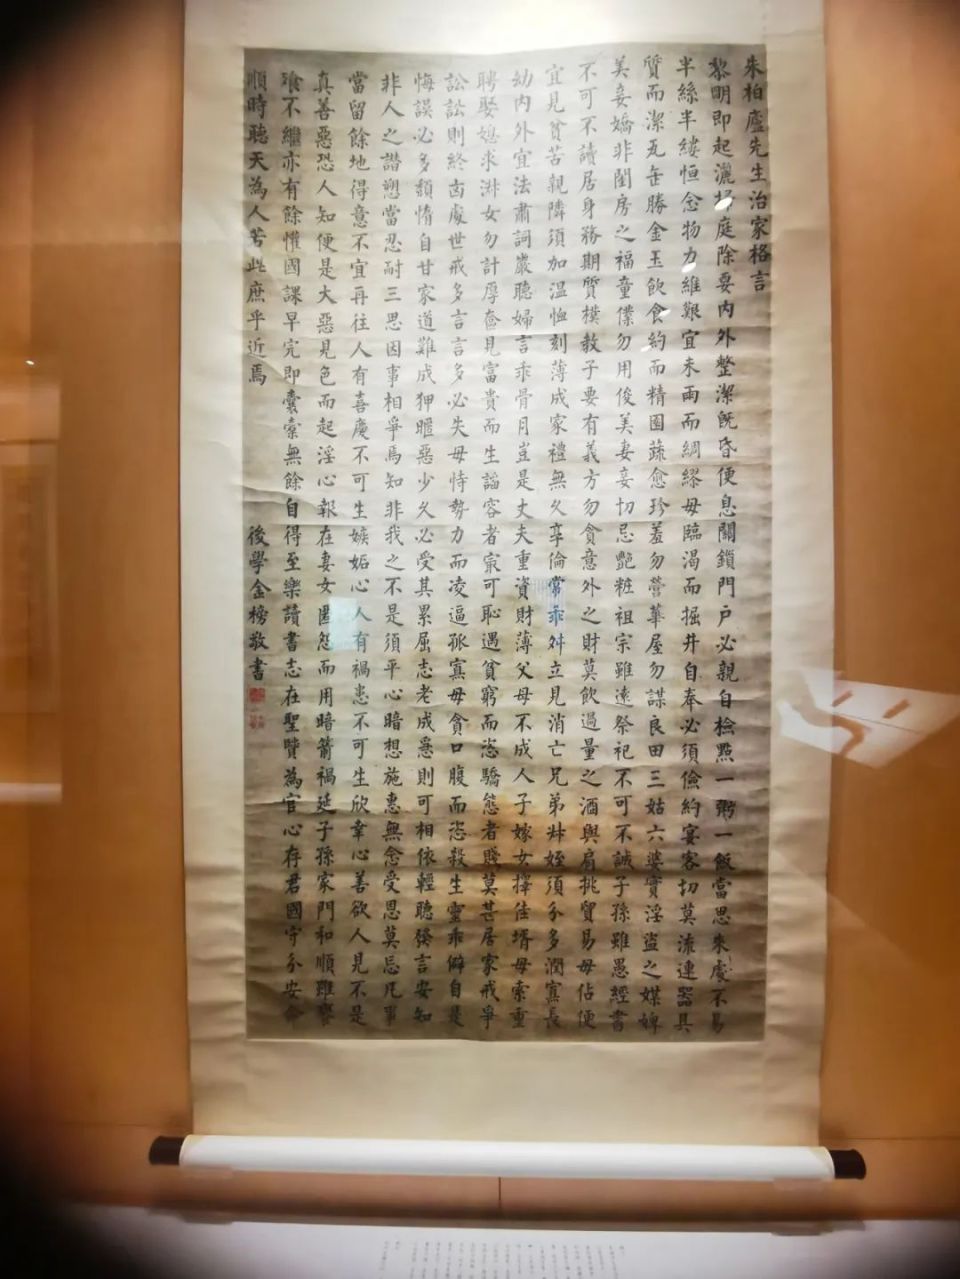 朱柏廬先生治家格言
黎明即起灑掃庭除要内外整潔旣昏便息關鎖門戶必親自檢㸃一粥一飯當思來處不易
半絲半縷恒念物力維艱宜未雨而綢繆毋臨渴而掘井自奉必須儉約宴客切莫流連器具
質而潔瓦缶勝金玉飲食約而精園蔬愈珍羞勿營華屋勿謀良田三姑六婆實淫盜之媒婢
美妾嬌非閨房之福童僕勿用俊美妻妾切忌艷粧祖宗雖遠祭祀不可不誠子孫雖愚經書
不可不讀居身務期質樸教子要有義方勿貪意外之財莫飲過量之酒與肩挑貿易毋佔便
宜見貧苦親隣須加温恤刻薄成家禮無久享倫常乖舛立見消亡兄弟叔姪須分多潤寡長
幼内外宜法肅詞嚴聽婦言乖骨月豈是丈夫重資財薄父母不成人子嫁女擇佳壻毋索重
聘娶媳求淑女勿計厚奩見富貴而生謟容者㝡可恥遇貧窮而恣驕態者賤莫甚居家戒爭
訟訟則終凶處世戒多言言多必失毋恃勢力而凌逼孤寡毋貪口腹而恣殺生靈乖僻自是
悔誤必多頹惰自甘家道難成狎暱惡少久必受其累屈志老成急則可相依輕聽發言安知
非人之譖愬當忍耐三思因事相爭焉知非我之不是須平心暗想施惠無念受恩莫忘凡事
當留餘地得意不宜再往人有喜慶不可生嫉妬心人有禍患不可生欣幸心善欲人見不是
真善惡恐人知便是大惡見色而起淫心報在妻女匿怨而用暗箭禍延子孫家門和順雖饔
飧不繼亦有餘懽國課早完即囊橐無餘自得至樂讀書志在聖賢為官心存君國守分安命
順時聽天為人若此庶乎近焉
後學金榜敬書